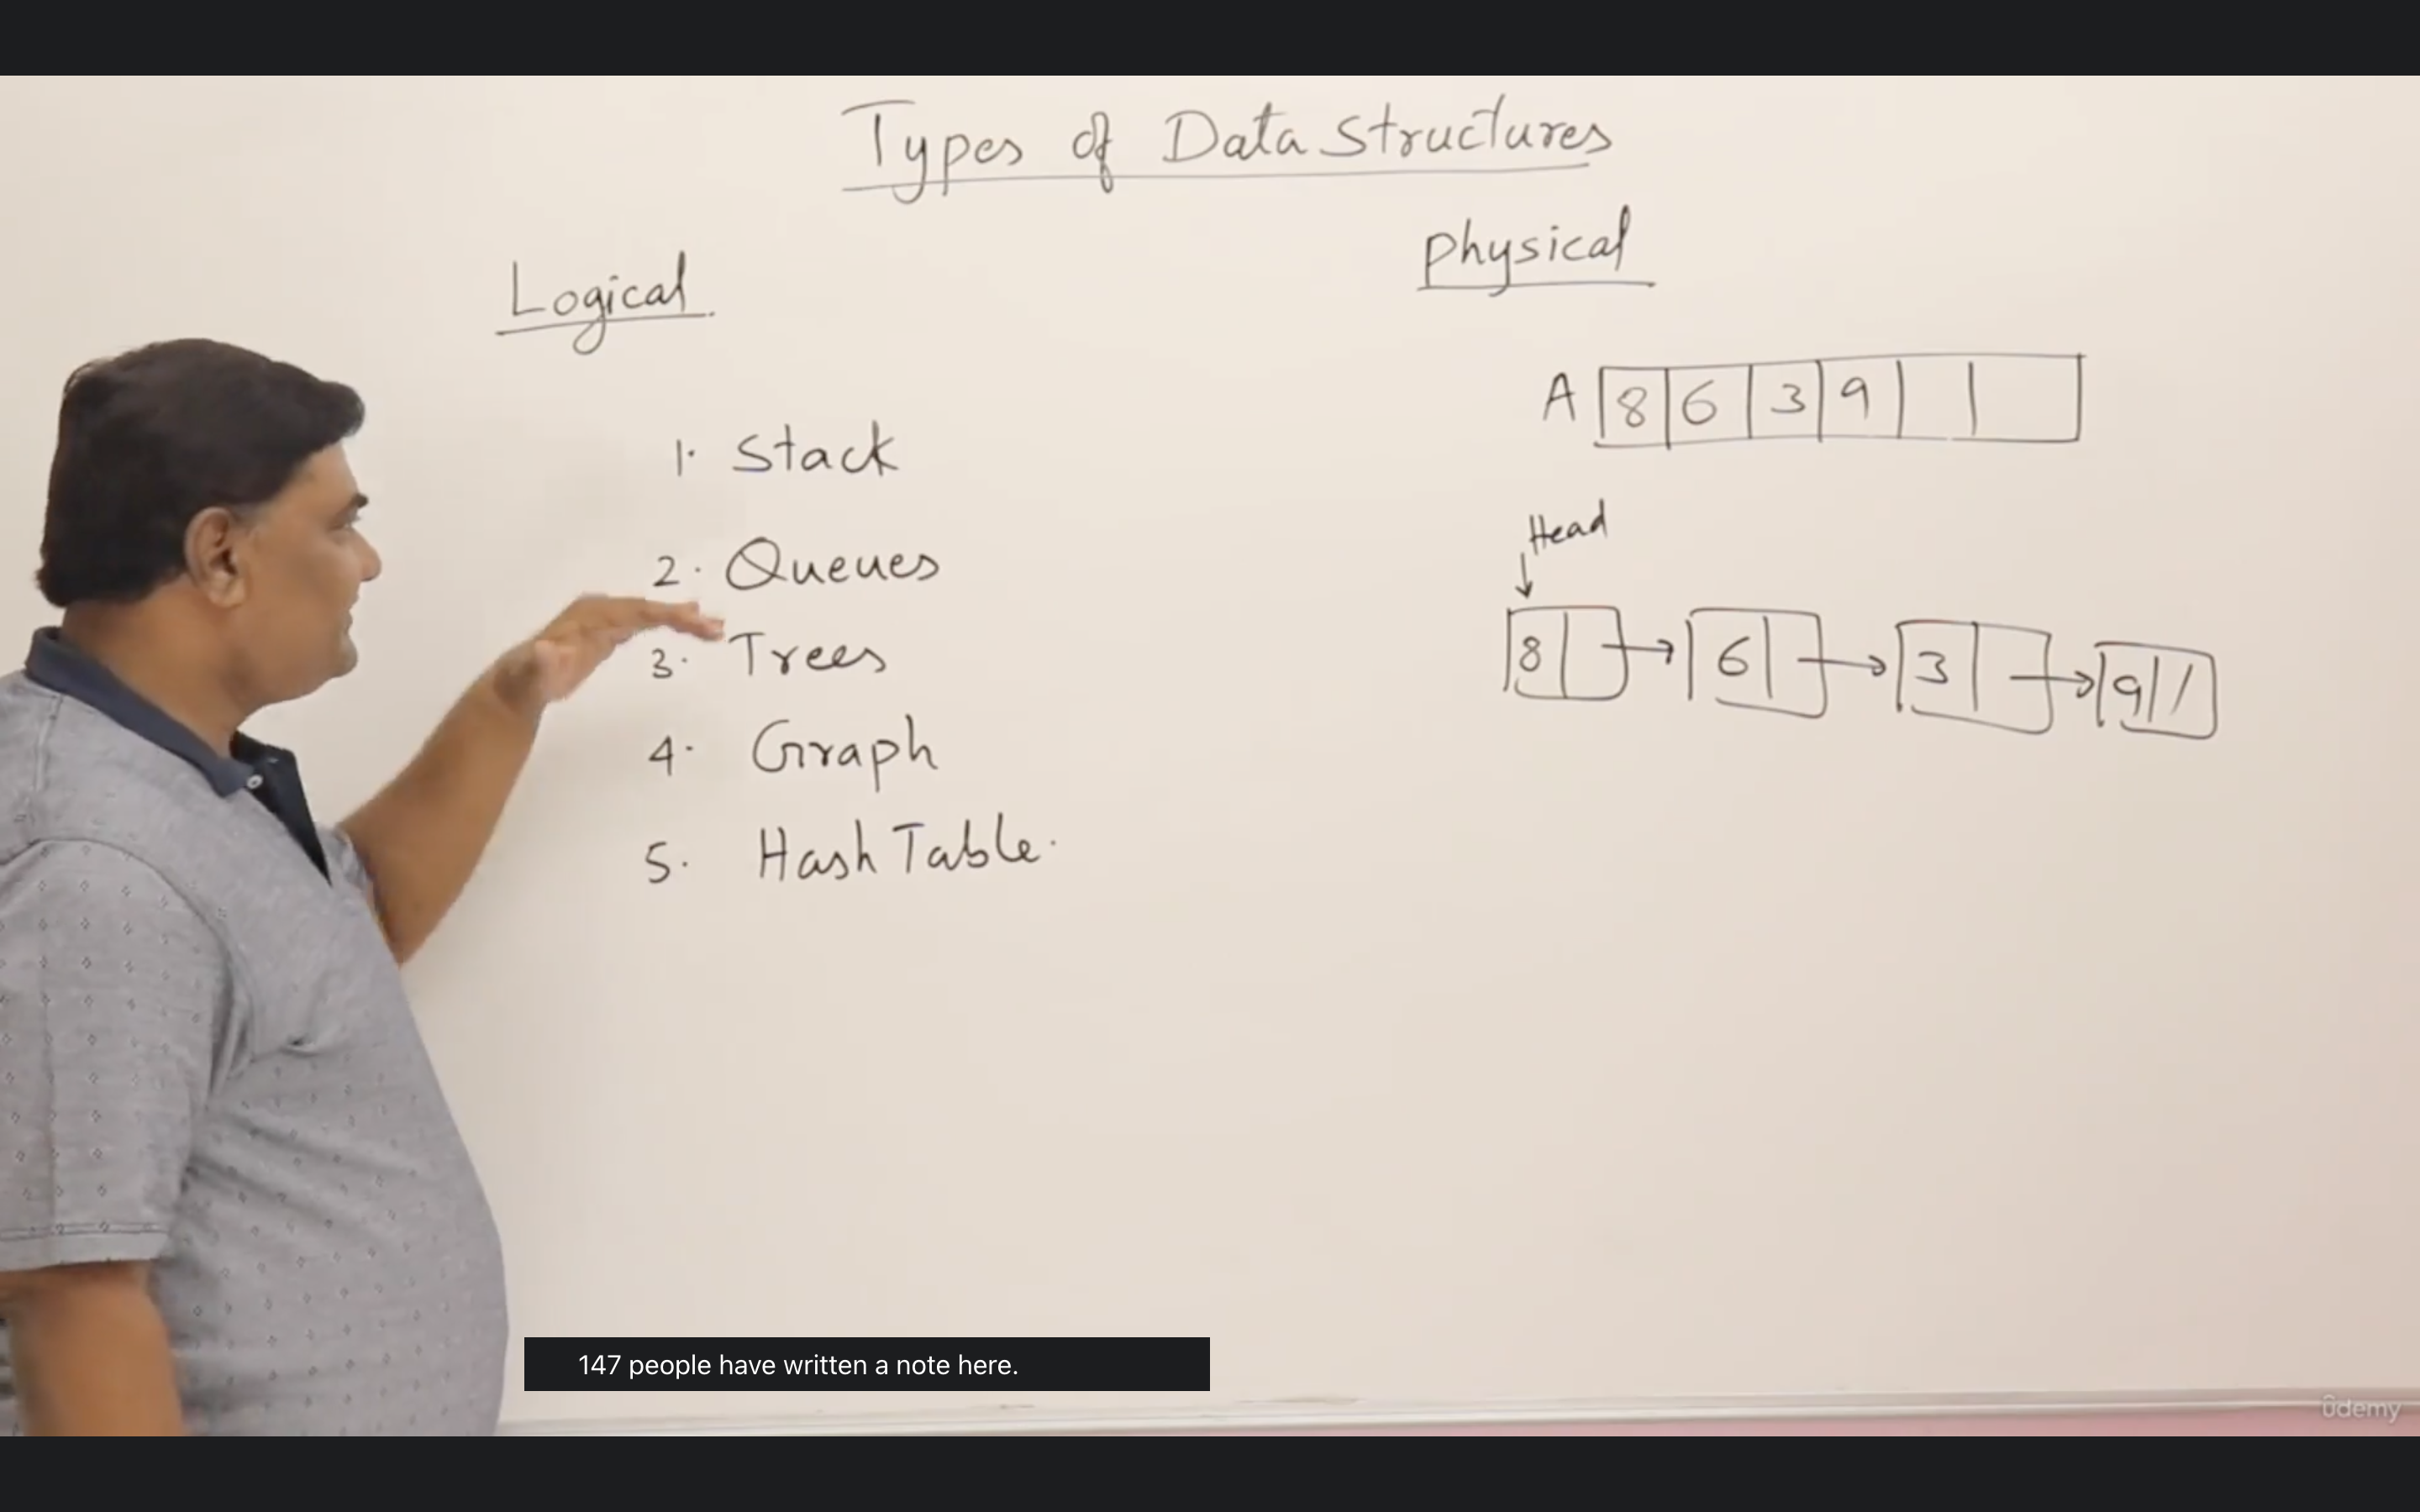 Types of Data Structures
Logical
1. Stack
2. Queues
3. Trees
4. Graph
5. Hash Table.
Physical
A 8 6 3 9
Head
8 6 3 9 /
147 people have written a note here.
ûdemy